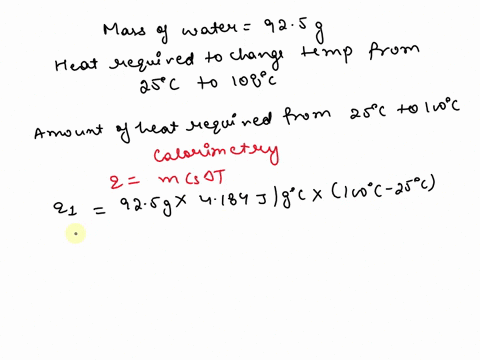 Mass of water = 92.5 g
Heat required to change temp from
25°C to 108°C
Amount of heat required from 25°C to 100°C
Calorimetry
q = m Cs ΔT
q1 = 92.5g × 4.184 J/g°C × (100°C - 25°C)